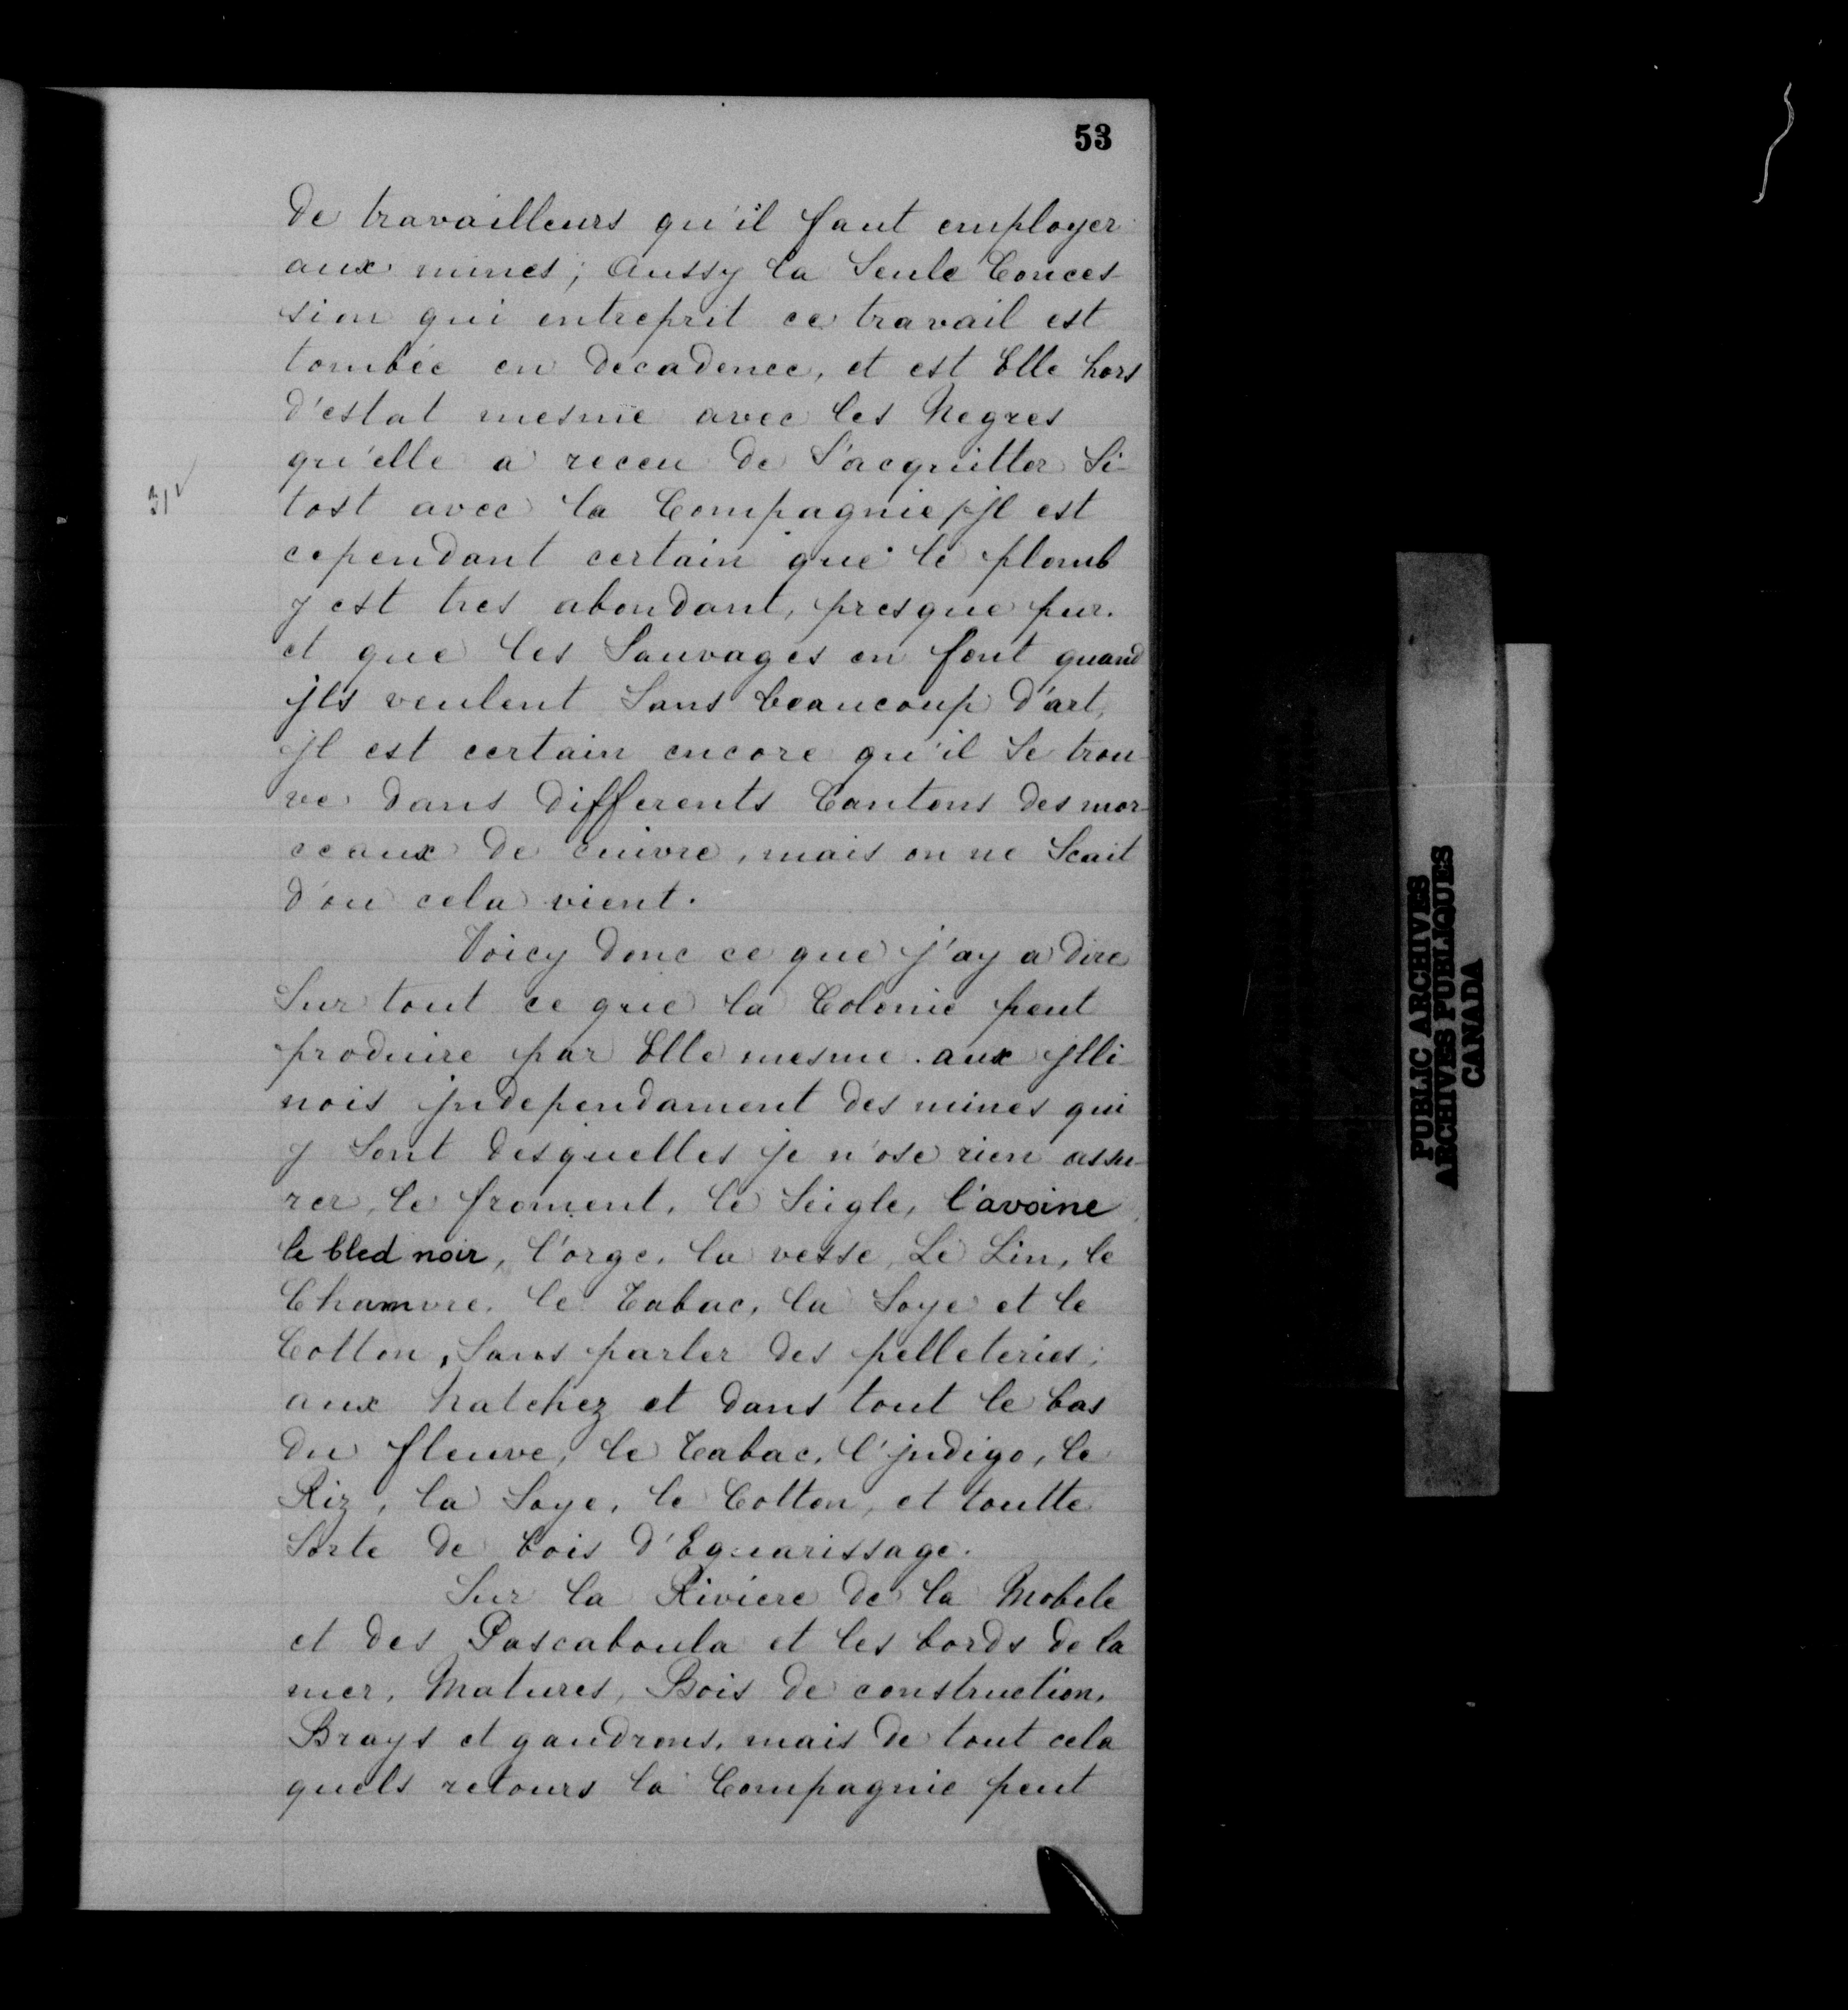 53
de travailleurs qu'il faut employer
aux mines; Aussy la Seule Conces-
sion qui entreprit ce travail est
tombée en decadence, et est Elle hors
d'estat mesme avec les Negres
qu'elle a receu de S'acquitter Si-
31v
tost avec la Compagnie, jl est
cependant certain que le plomb
y est tres abondant, presque pur.
et que les Sauvages en font quand
jls veulent Sans beaucoup d'art,
jl est certain encore qu'il Se trou-
ve dans differents Cantons des mor-
ceaux de cuivre, mais on ne Scait
d'ou cela vient.
Voicy donc ce que j'ay a dire
Sur tout ce que la Colonie peut
produire par Elle mesme. aux jlli-
nois jndependament des mines qui
y Sont desquelles je n'ose rien assu-
rer, le froment, le Seigle, l'avoine,
le bled noir, l'orge, la vesse, Le Lin, le
Chamvre, le Tabac, la Soye et le
Cotton, Sans parler des pelleteries;
aux natchez et dans tout le bas
du fleuve, le Tabac, l'jndigo, le
Riz, la Soye, le Cotton, et toutte
Sorte de bois d'Equarissage.
Sur la Riviere de la Mobele
et des Pascaboula et les bords de la
mer, Matures, Bois de construction,
Brays et gaudrons, mais de tout cela
quels retours la Compagnie peut
PUBLIC ARCHIVES
ARCHIVES PUBLIQUES
CANADA